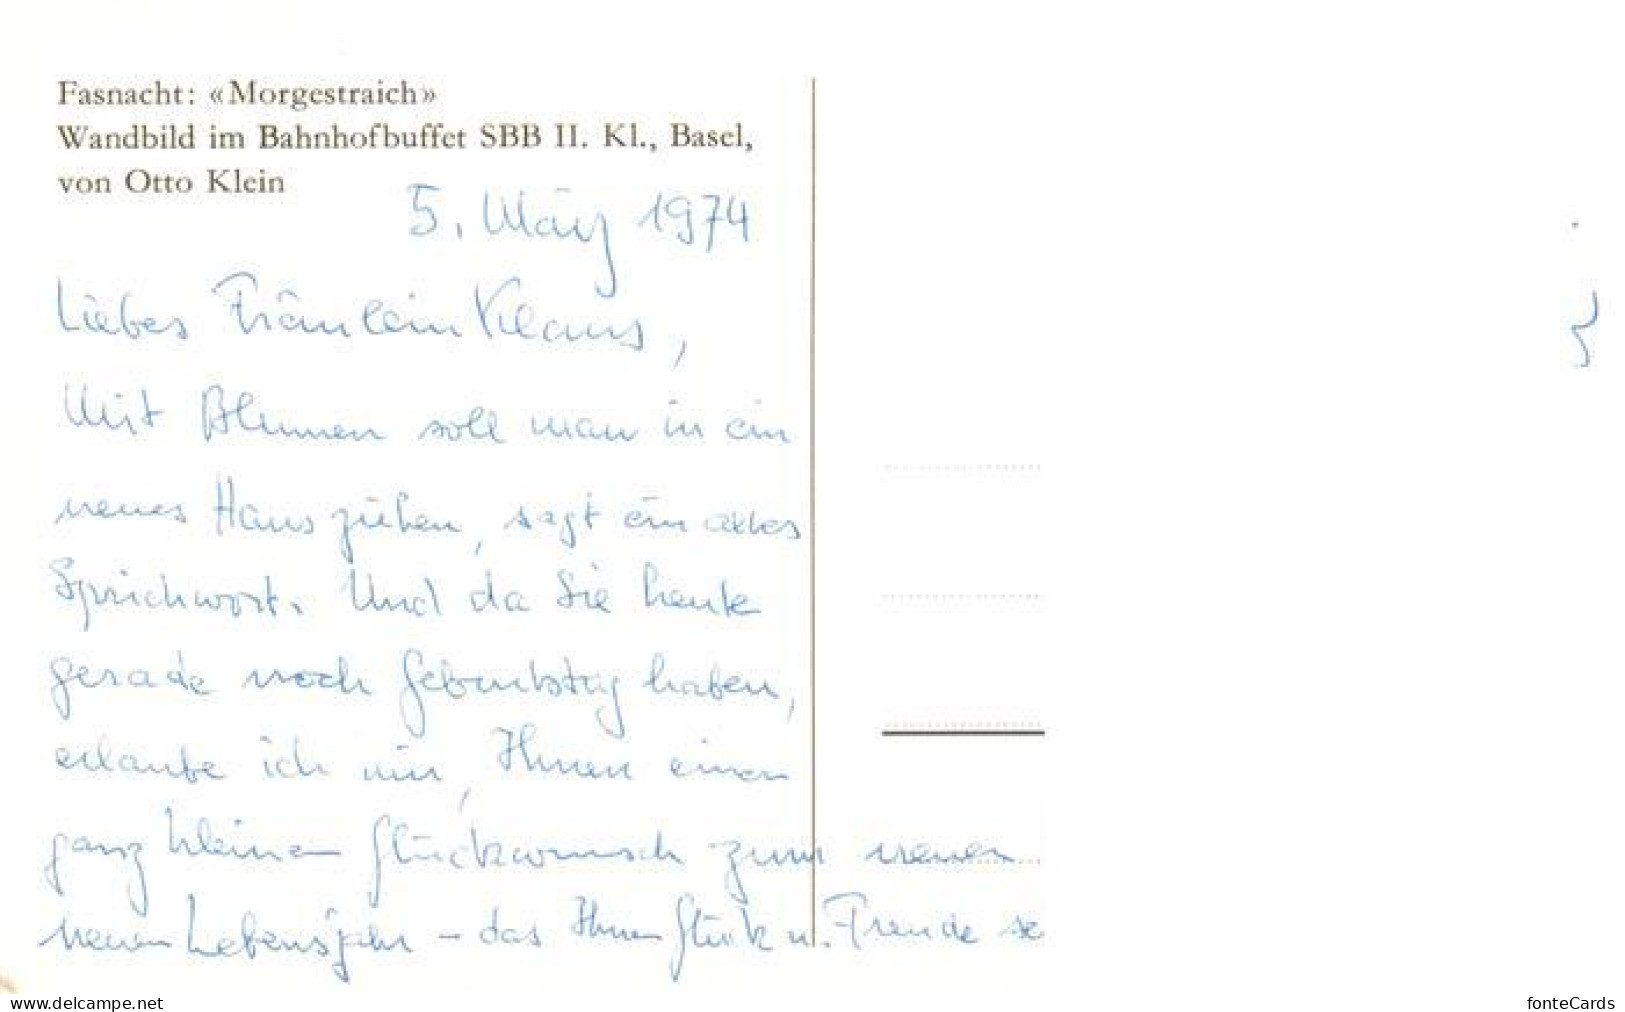 Fasnacht: «Morgestraich»
Wandbild im Bahnhofbuffet SBB II. Kl., Basel,
von Otto Klein
5. März 1974
Liebes Fräulein Klaus,
Mit Blumen soll man in ein
neues Haus ziehen, sagt ein altes
Sprichwort. Und da Sie heute
gerade noch Geburtstag haben,
erlaube ich mir, Ihnen einen
ganz kleinen Glückwunsch zum neuen
neuen Lebensjahr – das Ihnen Glück u. Freude se
www.delcampe.net
fonteCards